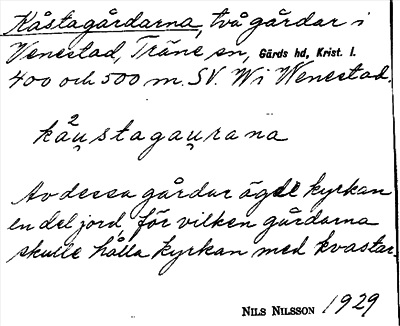 Kåstagårdarna, två gårdar i
Venestad, Träne sn, Gärds hd, Krist. l.
400 och 500 m. SV. W i Wenestad.
kå2u̯stagau̯rana
Av dessa gårdar ägde kyrkan
en del jord, för vilken gårdarna
skulle hålla kyrkan med kvastar.
NILS NILSSON 1929